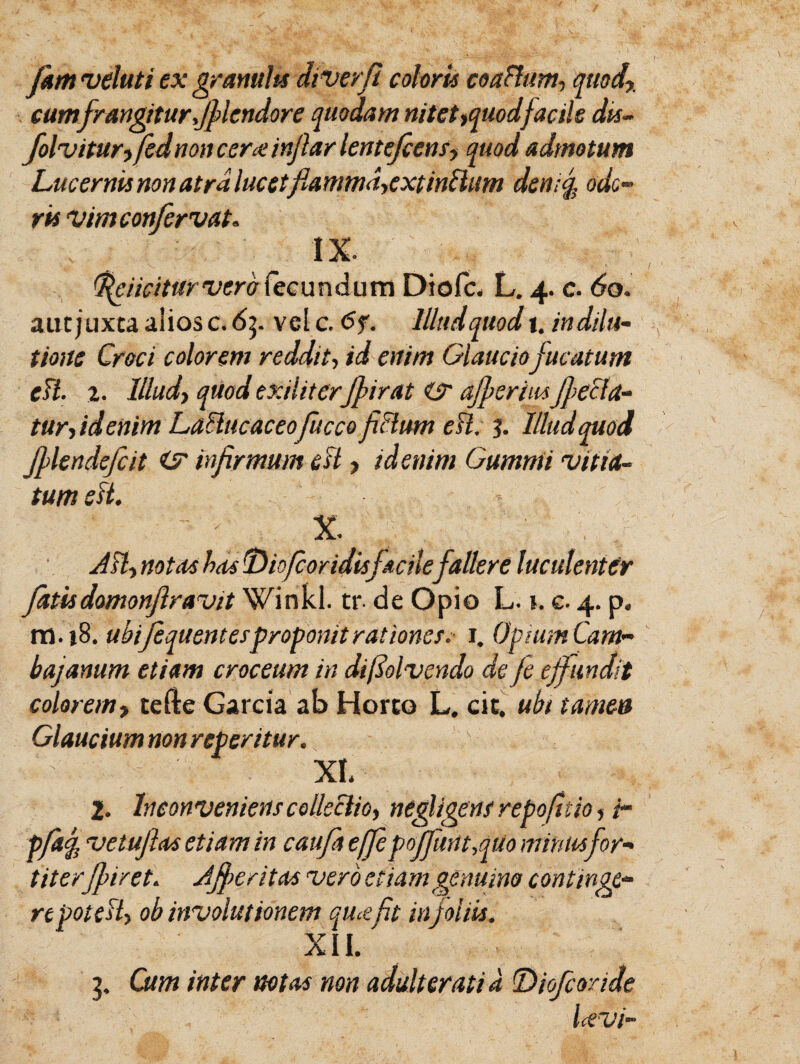 ſam veluti ex granulis diverſi coloris coactum, quod,
cum frangitur, ſplendore quodam nitet, quod facile dis-
ſolvitur, ſed non ceræ inſtar lenteſcens, quod admotum
Lucernis non atrâ lucet flammâ, extinctum deniq; odo-
ris vim conſervat.
IX.
Reiicitur verò ſecundum Dioſc. L. 4. c. 60.
aut juxta alios c. 63. vel c. 65. Illud quod 1. in dilu-
tione Croci colorem reddit, id enim Glaucio fucatum
eſt. 2. Illud, quod exiliter ſpirat & aſperius ſpecta-
tur, id enim Lactucaceo ſucco fictum eſt. 3. Illud quod
ſplendeſcit & infirmum eſt, id enim Gummi vitia-
tum eſt.
X.
Aſt, notas has Dioſcoridis facile fallere luculenter
ſatis domonſtravit Winkl. tr. de Opio L. 1. c. 4. p.
m. 18. ubi ſequentes proponit rationes. 1. Opium Cam-
bajanum etiam croceum in diſſolvendo de ſe effundit
colorem, teſte Garcia ab Horto L. cit. ubi tamen
Glaucium non reperitur.
XI.
2. Inconveniens collectio, negligens repoſitio, i-
pſaq; vetuſtas etiam in cauſa eſſe poſſunt, quo minus for-
titer ſpiret. Aſperitas verò etiam genuino continge-
re poteſt, ob involutionem quæ fit in foliis.
XII.
3. Cum inter notas non adulterati à Dioſcoride
lævi-